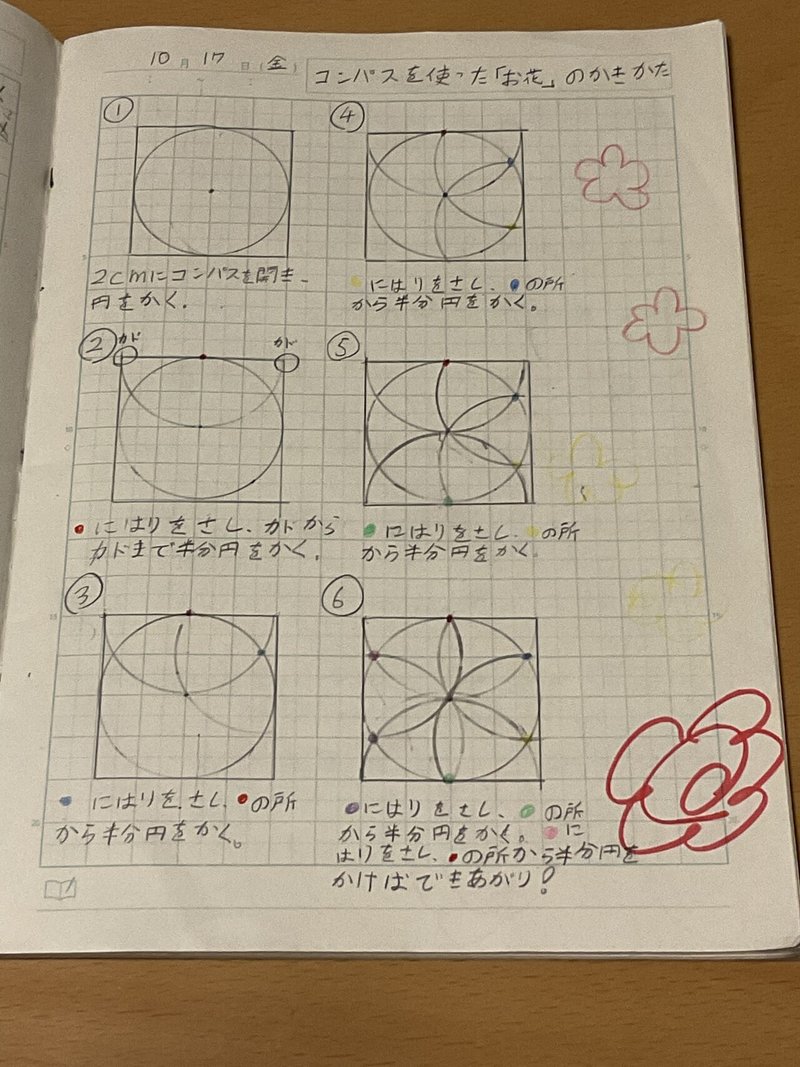 10月17日(金)
コンパスを使った「お花」のかきかた
①
2cmにコンパスを開き、
円をかく.
②
カド
カド
にはりをさし、カドから
カドまで半分円をかく.
③
にはりをさし、の所
から半分円をかく。
④
にはりをさし、の所
から半分円をかく。
⑤
にはりをさし、の所
から半分円をかく.
⑥
にはりをさし、の所
から半分円をかく。に
はりをさし、の所から半分円を
かければできあがり!